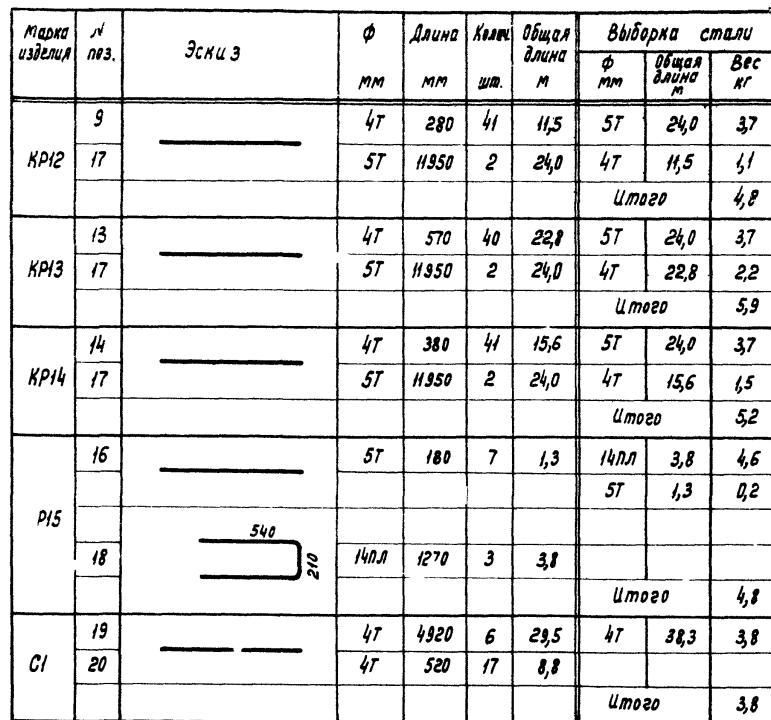 Марка изделия N поз. Эскиз Ф мм Длина мм Колич шт. Общая длина м Выборка стали
Ф мм Общая длина м Вес кг
КР12 9 4Т 280 41 11,5 5Т 24,0 3,7
17 5Т 11950 2 24,0 4Т 11,5 1,1
Итого 4,8
КР13 13 4Т 570 40 22,8 5Т 24,0 3,7
17 5Т 11950 2 24,0 4Т 22,8 2,2
Итого 5,9
КР14 14 4Т 380 41 15,6 5Т 24,0 3,7
17 5Т 11950 2 24,0 4Т 15,6 1,5
Итого 5,2
Р15 16 5Т 180 7 1,3 14ПЛ 3,8 4,6
5Т 1,3 0,2
540
18 210 14ПЛ 1270 3 3,8
Итого 4,8
С1 19 4Т 4920 6 29,5 4Т 38,3 3,8
20 4Т 520 17 8,8
Итого 3,8